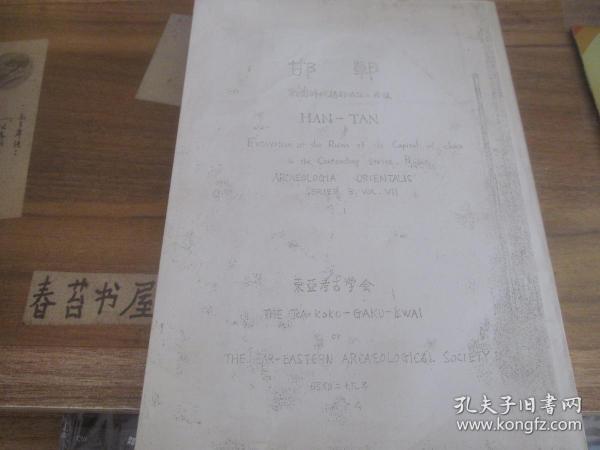 邯鄲
HAN-TAN
Excavation at the Ruins of the Capital of Chao
in the Contending States Period
ARCHAEOLOGIA ORIENTALIS
SERIES B, VOL. VII
東亞考古学会
THE TOA-KOKO-GAKU-KWAI
or
THE FAR-EASTERN ARCAEOLOGICAL SOCIETY
春苔书屋
孔夫子旧书网
www.kongfz.com